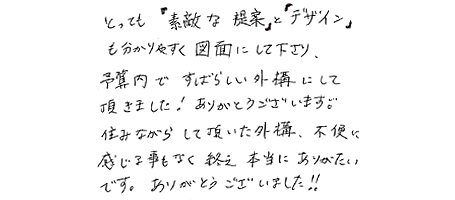 とっても『素敵な提案』と『デザイン』
も分かりやすく図面にして下さり、
予算内ですばらしい外構にして
頂きました！ありがとうございます。
住みながらして頂いた外構、不便に
感じる事もなく終え本当にありがたい
です。ありがとうございました!!